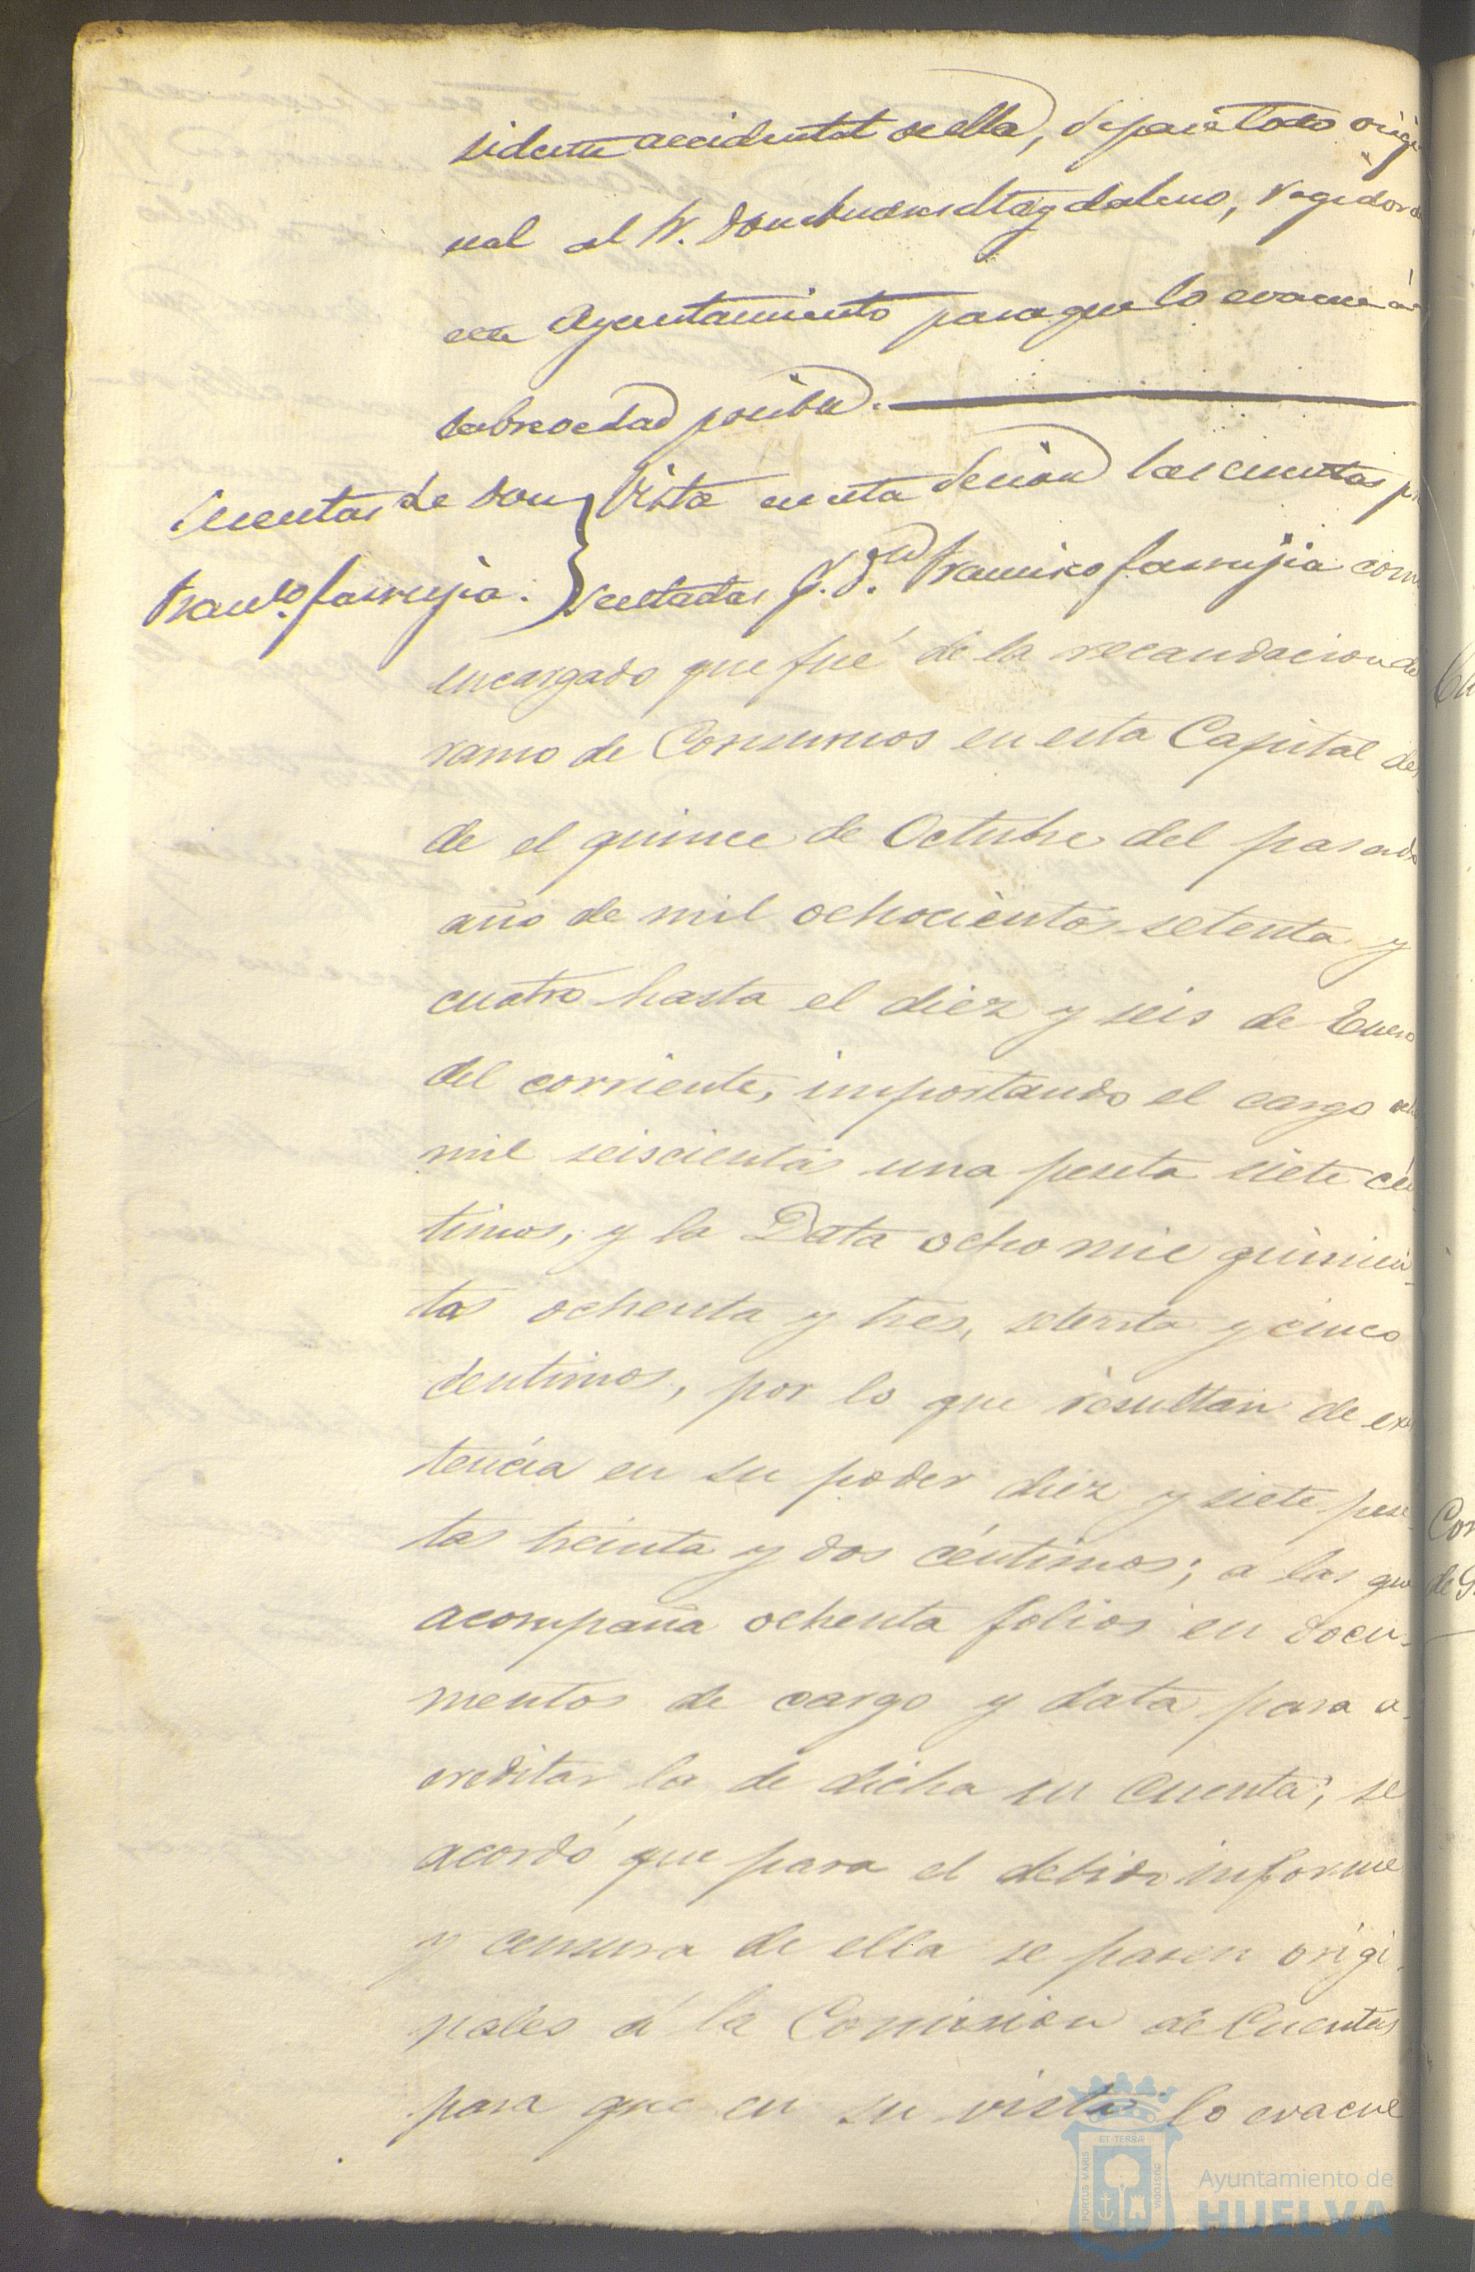 sidente accidental de ella, se pase todo origi
nal al Sr. Don Andres Magdaleno, regidor de
este Ayuntamiento para que lo evacue á
la brevedad posible.
Cuentas de Don
Franco. Farrujia.
Vista en esta sesion las cuentas pre
sentadas p. Dn. Francisco Farrujia como
encargado que fué de la recaudacion del
ramo de Consumos en esta Capital des
de el quince de Octubre del pasado
año de mil ochocientos setenta y
cuatro hasta el diez y seis de Enero
del corriente, importando el cargo ocho
mil seiscientas una peseta siete cén
timos, y la Data ocho mil quinien-
tas ochenta y tres, setenta y cinco
centimos, por lo que resultan de exis
tencia en su poder diez y siete pese-
tas treinta y dos céntimos; a las que
acompaña ochenta folios en docu-
mentos de cargo y data para a-
creditar la de dicha su cuenta; se
acordó que para el debido informe
y censura de ella se pasen origi-
nales á la Comision de Cuentas
para que en su vista lo evacue
Cu
Con
de G.
PORTUS MARIS
ET TERRÆ
CUSTODIA
Ayuntamiento de
HUELVA